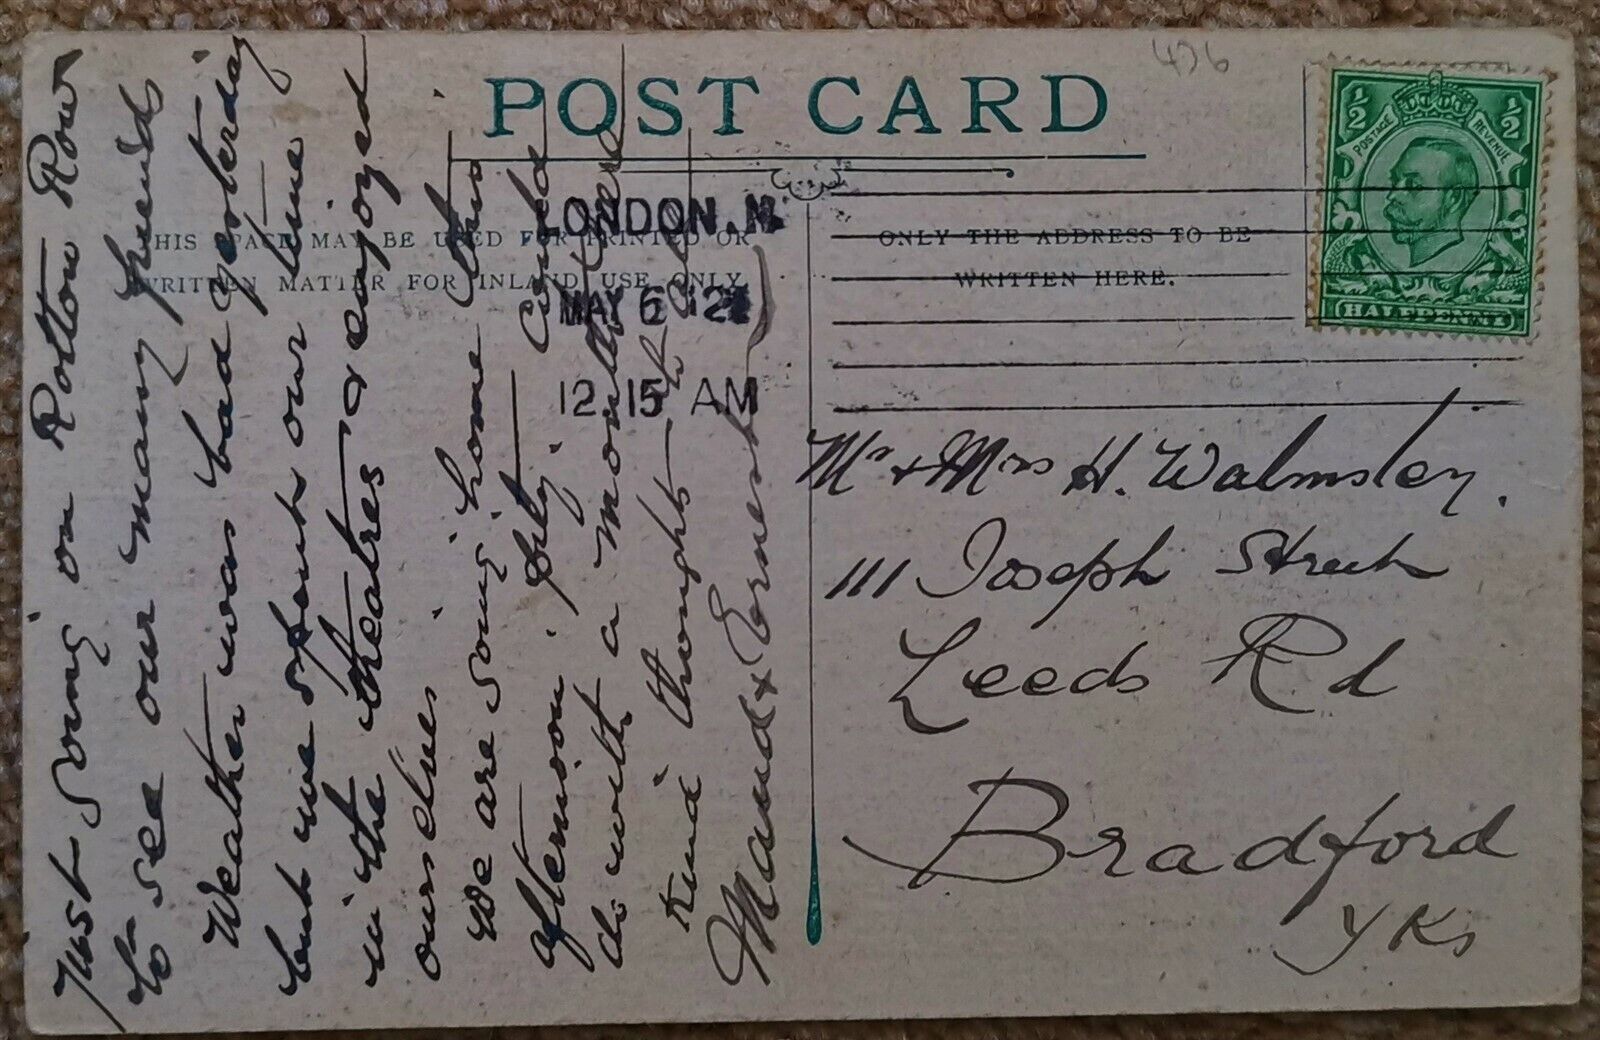 476
POST CARD
THIS SPACE MAY BE USED FOR PRINTED OR
WRITTEN MATTER FOR INLAND USE ONLY.
ONLY THE ADDRESS TO BE
WRITTEN HERE.
½ ½
POSTAGE REVENUE
HALFPENNY
LONDON. N.
MAY 6 12
12 15 AM
Just going on Rotton Row
to see our many friends
Weather was bad yesterday
but we spent our time
in the theatres & enjoyed
ourselves
We are going home this
afternoon. Pity. could
do with a month here
Kind thoughts to all
Maud & Ernest
Mr & Mrs H. Walmsley.
111 Joseph Street
Leeds Rd
Bradford
Yks